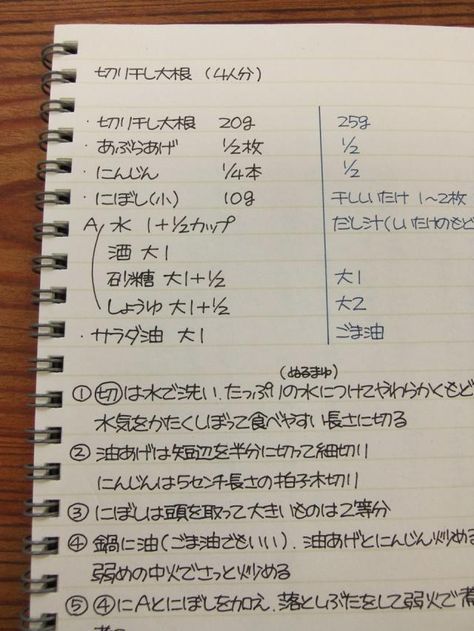 切り干し大根 (4人分)
・切り干し大根 20g 25g
・あぶらあげ 1/2枚 1/2
・にんじん 1/4本 1/2
・にぼし(小) 10g 干ししいたけ 1〜2枚
A 水 1+1/2カップ だし汁(しいたけのもど
酒 大1
砂糖 大1+1/2 大1
しょうゆ 大1+1/2 大2
・サラダ油 大1 ごま油
(ぬるまゆ)
① 切は水で洗い、たっぷりの水につけてやわらかくもど
水気をかたくしぼって食べやすい長さに切る
② 油あげは短辺を半分に切って細切り
にんじんは5センチ長さの拍子木切り
③ にぼしは頭を取って大きいものは2等分
④ 鍋に油(ごま油でもいい)、油あげとにんじん炒める
弱めの中火でさっと炒める
⑤ ④にAとにぼしを加え、落としぶたをして弱火で煮